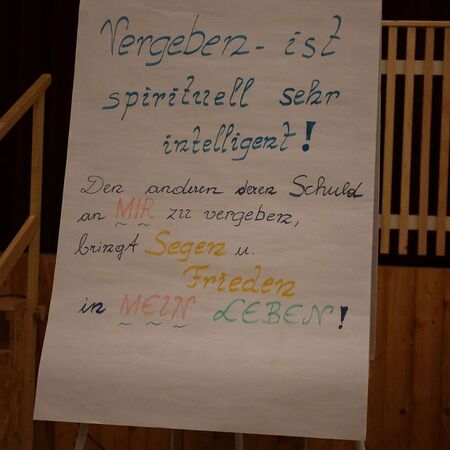 Vergeben - ist
spirituell sehr
intelligent!
Den anderen deren Schuld
an MIR zu vergeben,
bringt Segen u.
Frieden
in MEIN LEBEN!